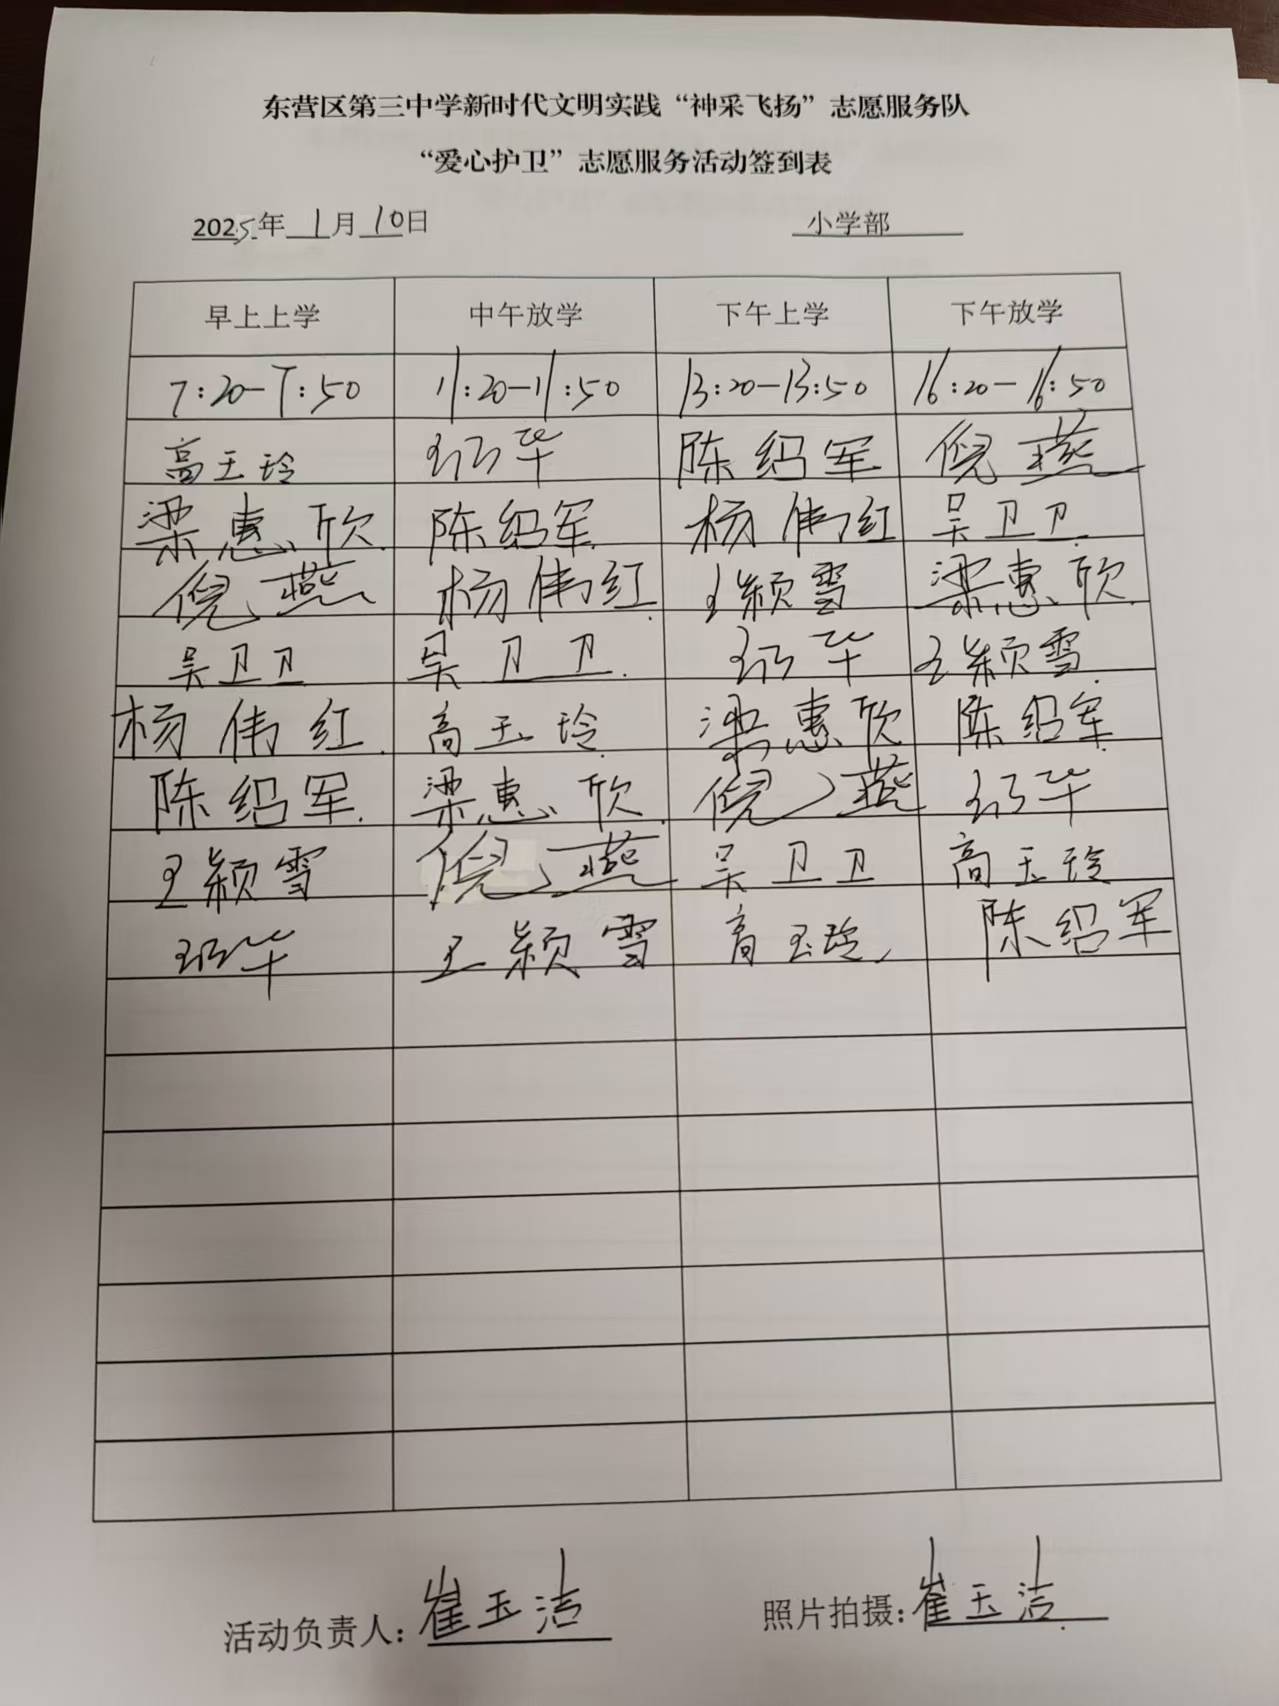 东营区第三中学新时代文明实践“神采飞扬”志愿服务队
“爱心护卫”志愿服务活动签到表
2025年1月10日 小学部
早上上学 中午放学 下午上学 下午放学
7:20-7:50 11:20-11:50 13:20-13:50 16:20-16:50
高玉玲 华 陈绍军 倪燕
梁惠欣 陈绍军 杨伟红 吴卫卫
倪燕 杨伟红 王颖雪 梁惠欣
吴卫卫 吴卫卫 华 王颖雪
杨伟红 高玉玲 梁惠欣 陈绍军
陈绍军 梁惠欣 倪燕 华
王颖雪 倪燕 吴卫卫 高玉玲
华 王颖雪 高玉玲 陈绍军
活动负责人：崔玉洁 照片拍摄：崔玉洁